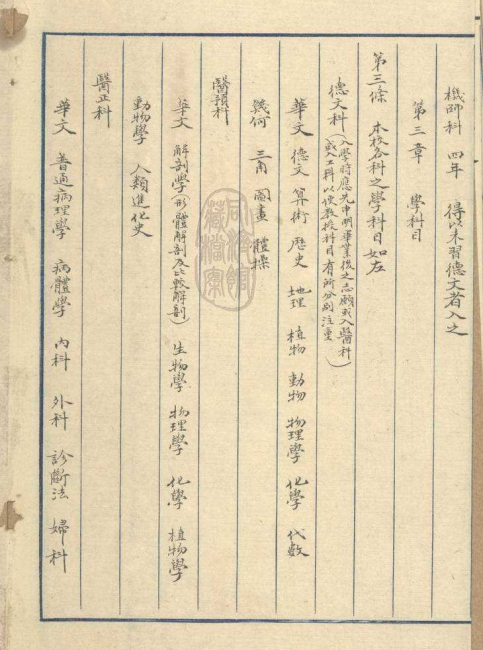 機師科　四年　得以未習德文者入之
第三章　學科目
第三條　本校各科之學科目如左
德文科（入學時應先申明畢業後之志願或入醫科
或入工科以便教授科目有所分別注重）
華文　德文　算術　歷史　地理　植物　動物　物理學　化學　代數
幾何　三角　圖畫　體操
醫預科
華文　解剖學（形體解剖及比較解剖）　生物學　物理學　化學　植物學
動物學　人類進化史
醫正科
華文　普通病理學　病體學　內科　外科　診斷法　婦科
同濟館
藏檔案